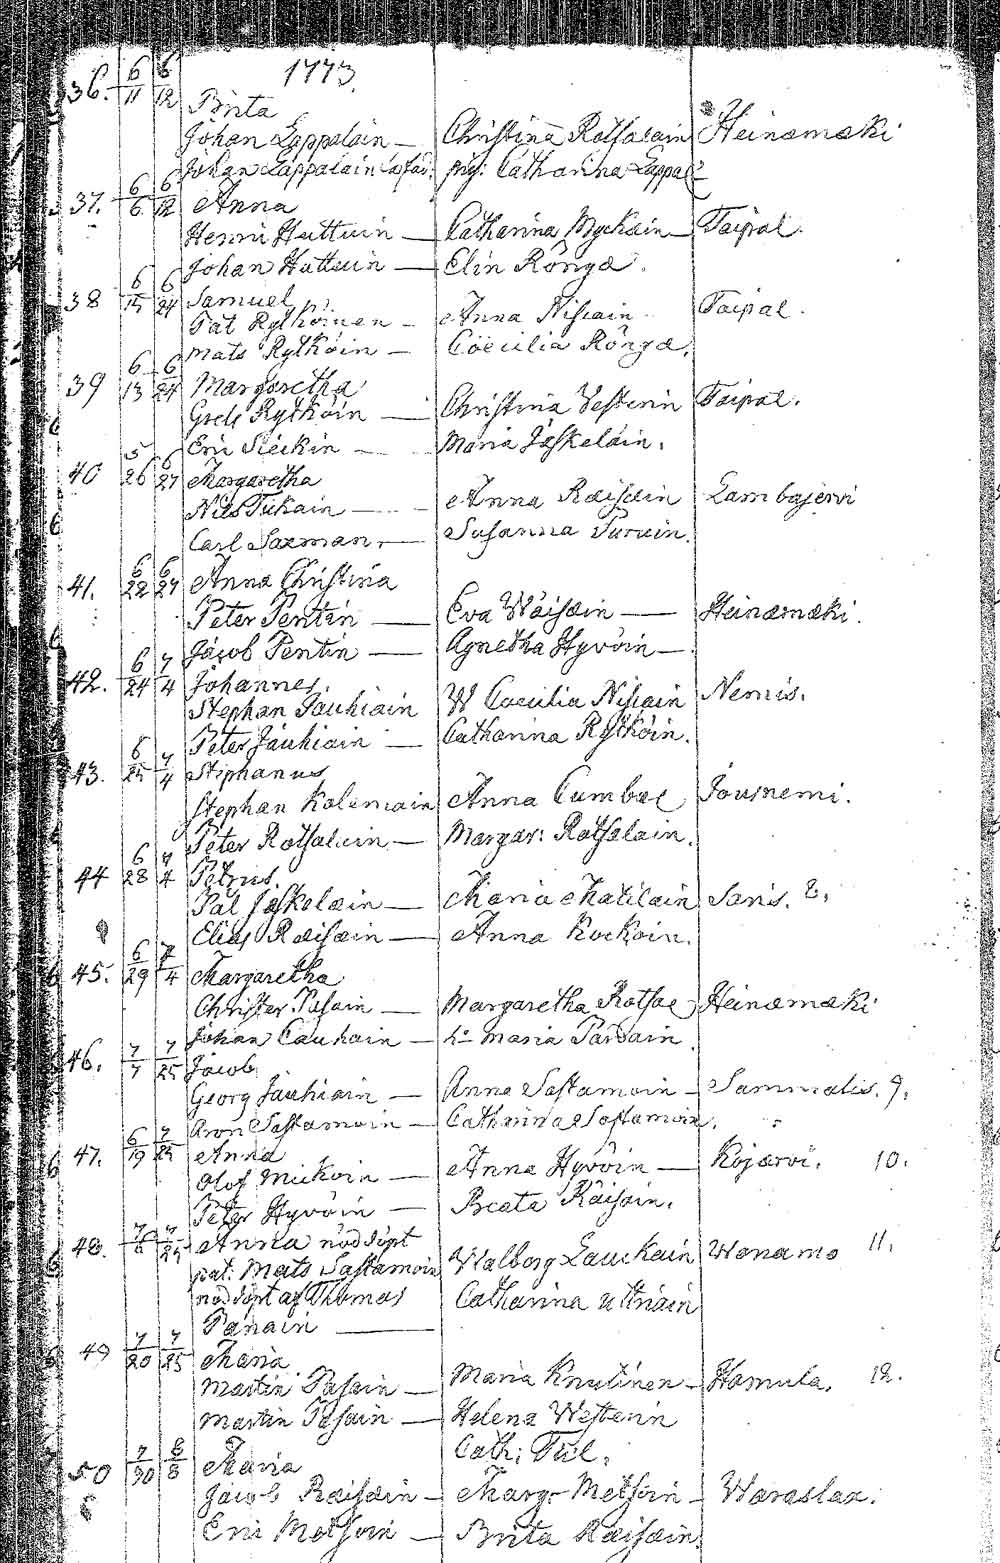 1773
36. 6/11 6/12 Brita
Johan Lappalain — Christina Rotsalain Heinæmæki
Johan Lappalain Cath: Lappal
37. 6/6 6/12 Anna
Henri Huttuin — Catharina Myckäin — Taipal.
Johan Huttuin — Elin Röngä.
38 6/15 6/24 Samuel
Pål Rytköinen — Anna Nissain Taipal.
Mats Rytköin — Cöcilia Röngä.
39 6/13 6/24 Margaretha
Grels Rytköin — Christina Vesterin Taipal.
Eric Sieikin — Maria Jäskeläin.
40 5/26 6/27 Margaretha
Nils Tukain — Anna Räisäin Lambajervi
Carl Saxman — Susanna Turuin.
41. 6/22 6/27 Anna Christina
Peter Pentin — Eva Wäisäin — Heinæmæki.
Jacob Pentin — Agnetha Hyvöin —
42. 6/24 7/4 Johannes.
Stephan Jauhiain W Cæcilia Nissain Nemis.
Peter Jauhiain — Catharina Rytköin.
43. 6/25 7/4 Stephanus
Stephan Kolemain Anna Cumbæl Jousnemi.
Peter Rotsalain — Margar: Rotsalain.
44 6/28 7/4 Petrus.
Pål Jäskeläin — Maria Matilain Sanis. 8.
Elias Räisäin — Anna Kockoin.
45. 6/29 7/4 Margaretha
Christer Pasain — Margaretha Rotsae Heinæmæki
Johan Cauhain — h: Maria Parsain.
46. 7/7 7/25 Jacob
Georg Jauhiain — Anna Sastamoin — Sammalis. 9.
Aron Sastamoin — Catharina Sastamoin.
47. 6/19 7/25 Anna
Olof Mickoin — Anna Hyvöin — Kojærvi. 10.
Peter Hyvöin — Beata Räisäin.
48. 7/6 7/25 Anna nöddöpt
pat: Mats Sastamoin Walborg Lauckain Wanamo 11.
nöddöpt af Thomas Catharina
Pänäin —
49 7/20 7/25 Maria
Martin Pasain — Maria Knutinen — Hamula. 12.
Martin Pasain — Helena Westerin
Cath:
50 7/30 8/8 Maria
Jacob Räisäin — Marg: Metsoin — Waraslax.
Eric Metsoin — Brita Räisäin